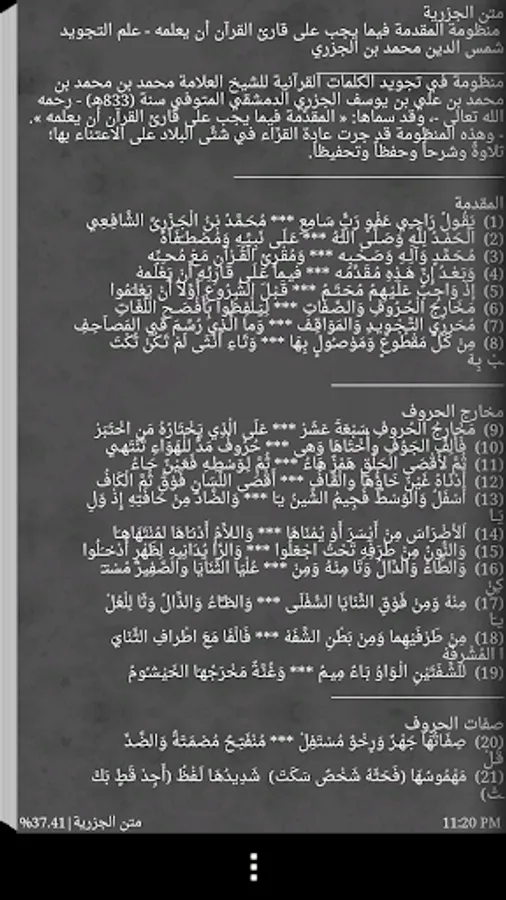 متن الجزرية
منظومة المقدمة فيما يجب على قارئ القرآن أن يعلمه - علم التجويد
شمس الدين محمد بن الجزري
منظومة في تجويد الكلمات القرآنية للشيخ العلامة محمد بن محمد بن
محمد بن علي بن يوسف الجزري الدمشقي المتوفي سنة (833هـ) - رحمه
الله تعالى -، وقد سماها: « المقدمة فيما يجب على قارئ القرآن أن يعلمه ».
- وهذه المنظومة قد جرت عادة القرّاء في شتّى البلاد على الاعتناء بها؛
تلاوةً وشرحاً وحفظاً وتحفيظاً.
المقدمة
(1) يَقُولُ رَاجِي عَفْوِ رَبٍّ سَامِعِ *** مُحَمَّدُ بْنُ الْجَزَرِيِّ الشَّافِعِي
(2) الْحَمْدُ لِلَّهِ وَصَلَّى اللَّهُ *** عَلَى نَبِيِّهِ وَمُصْطَفَاهُ
(3) مُحَمَّدٍ وَآلِهِ وَصَحْبِهِ *** وَمُقْرِئِ الْقُرْآنِ مَعْ مُحِبِّهِ
(4) وَبَعْدُ إِنَّ هَذِهِ مُقَدِّمَهْ *** فِيمَا عَلَى قَارِئِهِ أَنْ يَعْلَمَهْ
(5) إِذْ وَاجِبٌ عَلَيْهِمُ مُحَتَّمُ *** قَبْلَ الشُّرُوعِ أَوَّلاً أَنْ يَعْلَمُوا
(6) مَخَارِجَ الْحُرُوفِ وَالصِّفَاتِ *** لِيَلْفِظُوا بِأَفْصَحِ اللُّغَاتِ
(7) مُحَرِّرِي التَّجْوِيدِ وَالمَوَاقِفِ *** وَما الَّذِي رُسِّمَ فِي المَصاحِفِ
(8) مِنْ كُلِّ مَقْطُوعٍ وَمَوْصُولٍ بِهَا *** وَتَاءِ أُنْثَى لَمْ تَكُنْ تُكْتَ
بْ بِهَ
مخارج الحروف
(9) مَخَارِجُ الحُرُوفِ سَبْعَةَ عَشَرْ *** عَلَى الَّذِي يَخْتَارُهُ مَنِ اخْتَبَرْ
(10) فَأَلِفُ الجَوْفِ وأُخْتَاهَا وَهِي *** حُرُوفُ مَدٍّ للْهَوَاءِ تَنْتَهِي
(11) ثُمَّ لأَقْصَى الحَلْقِ هَمْزٌ هَاءُ *** ثُمَّ لِوَسْطِهِ فَعَيْنٌ حَاءُ
(12) أَدْنَاهُ غَيْنٌ خَاؤُهَا والْقَافُ *** أَقْصَى اللِّسَانِ فَوْقُ ثُمَّ الْكَافُ
(13) أَسْفَلُ وَالْوَسْطُ فَجِيمُ الشِّينُ يَا *** وَالضَّادُ مِنْ حَافَتِهِ إِذْ وَلِ
يَا
(14) الاَضْرَاسَ مِنْ أَيْسَرَ أَوْ يُمْنَاهَا *** وَاللاَّمُ أَدْنَاهَا لِمُنْتَهَاهَا
(15) وَالنُّونُ مِنْ طَرْفِهِ تَحْتُ اجْعَلُوا *** وَالرَّا يُدَانِيهِ لِظَهْرٍ أَدْخَلُوا
(16) وَالطَّاءُ وَالدَّالُ وَتَا مِنْهُ وَمِنْ *** عُلْيَا الثَّنَايَا والصَّفِيرُ مُسْتَ
كِنْ
(17) مِنْهُ وَمِنْ فَوْقِ الثَّنَايَا السُّفْلَى *** وَالظَّاءُ وَالذَّالُ وَثَا لِلْعُلْ
يَا
(18) مِنْ طَرَفَيْهِما وَمِنْ بَطْنِ الشَّفَهْ *** فَالْفَا مَعَ اطْرافِ الثَّنَاي
ا المُشْرِفَهْ
(19) للشَّفَتَيْنِ الْوَاوُ بَاءٌ مِيمُ *** وَغُنَّةٌ مَخْرَجُها الخَيْشُومُ
صفات الحروف
(20) صِفَاتُهَا جَهْرٌ وَرِخْوٌ مُسْتَفِلْ *** مُنْفَتِحٌ مُصْمَتَةٌ وَالضِّدَّ
قُلْ
(21) مَهْمُوسُهَا (فَحَثَّهُ شَخْصٌ سَكَتْ) شَدِيدُهَا لَفْظُ (أَجِدْ قَطٍ بَكَ
تْ)
%37.41|متن الجزرية
11:20 PM